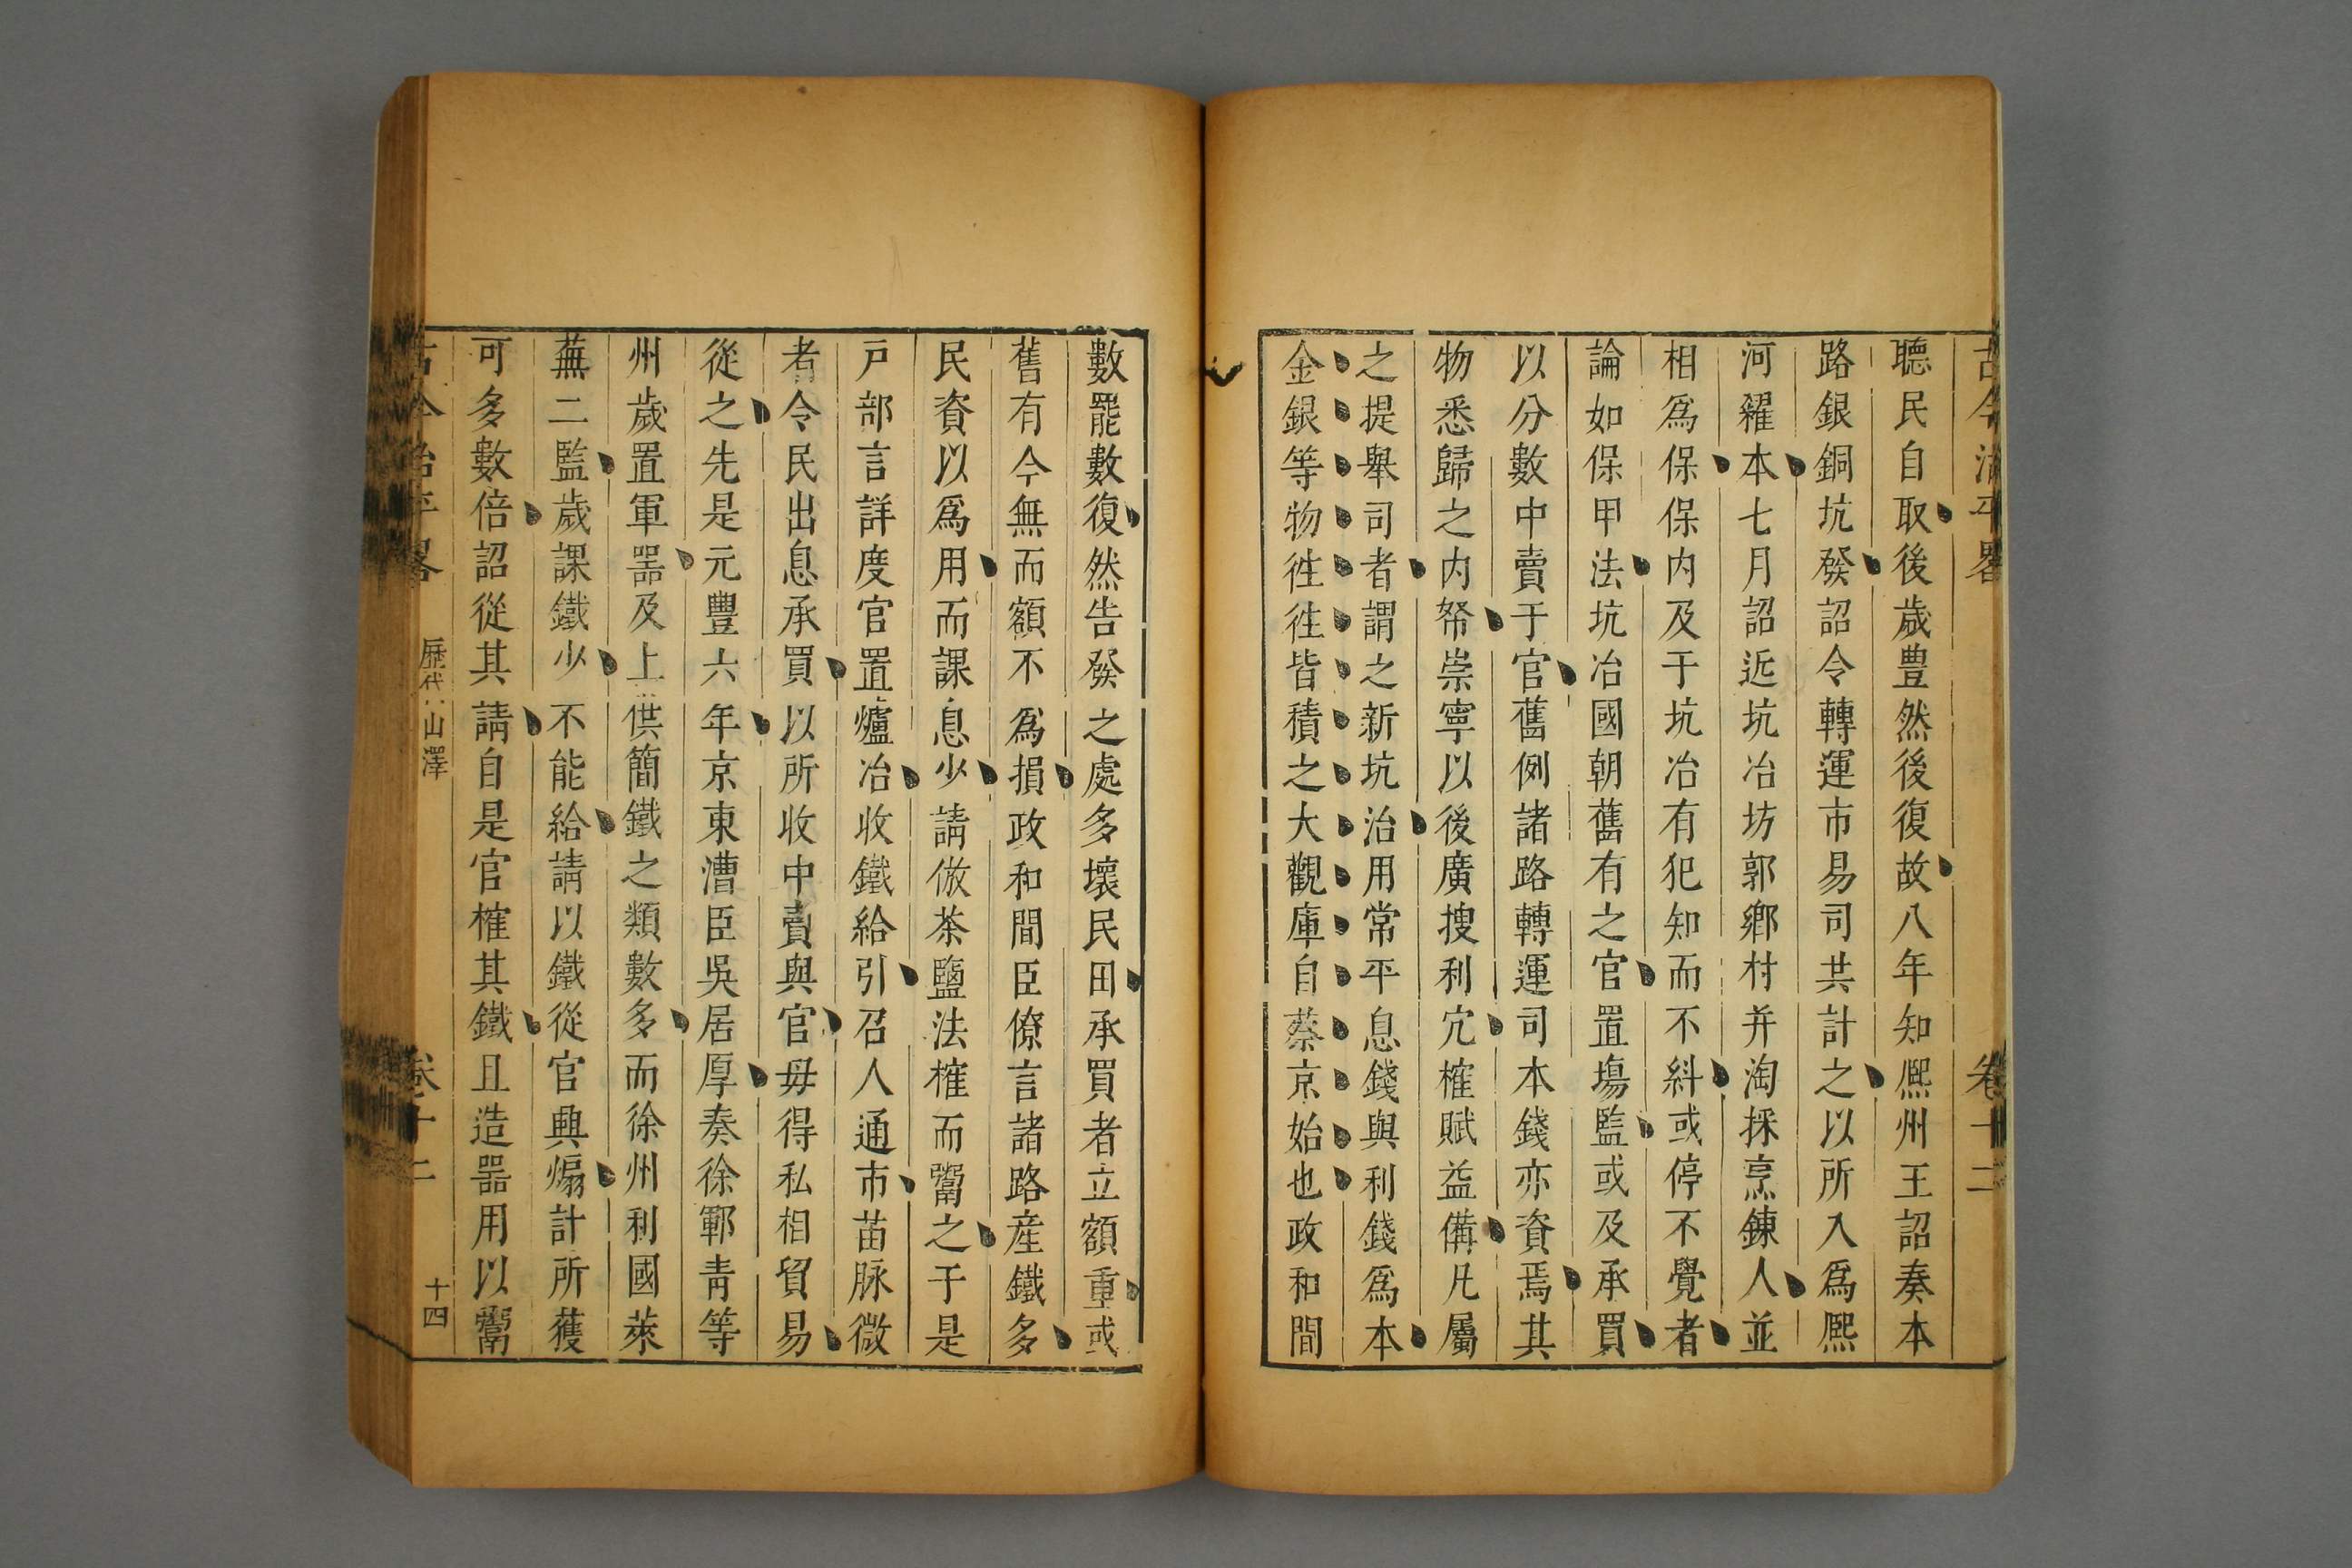 古今治平畧 卷十二
聽民自取後歲豊然後復故八年知熈州王詔奏本
路銀銅坑發詔令轉運市易司共計之以所入爲熈
河糴本七月詔近坑冶坊郭鄉村并淘採烹鍊人並
相爲保保内及于坑冶有犯知而不糾或停不覺者
論如保甲法坑冶國朝舊有之官置塲監或及承買
以分數中賣于官舊例諸路轉運司本錢亦資焉其
物悉歸之内帑崇寧以後廣搜利宂榷賦益備凡屬
之提舉司者謂之新坑治用常平息錢與利錢爲本
金銀等物徃徃皆積之大觀庫自蔡京始也政和間
數罷數復然告發之處多壞民田承買者立額重或
舊有今無而額不爲損政和間臣僚言諸路産鐵多
民資以爲用而課息少請倣茶鹽法榷而鬻之于是
戸部言詳度官置爐冶收鐵給引召人通市苗脉微
者令民出息承買以所收中賣與官毋得私相貿易
從之先是元豐六年京東漕臣吳居厚奏徐鄆青等
州歲置軍噐及上供簡鐵之類數多而徐州利國萊
蕪二監歲課鐵少不能給請以鐵從官興煽計所獲
可多數倍詔從其請自是官榷其鐵且造噐用以鬻
古今治平畧 歷代山澤 卷十二 十四